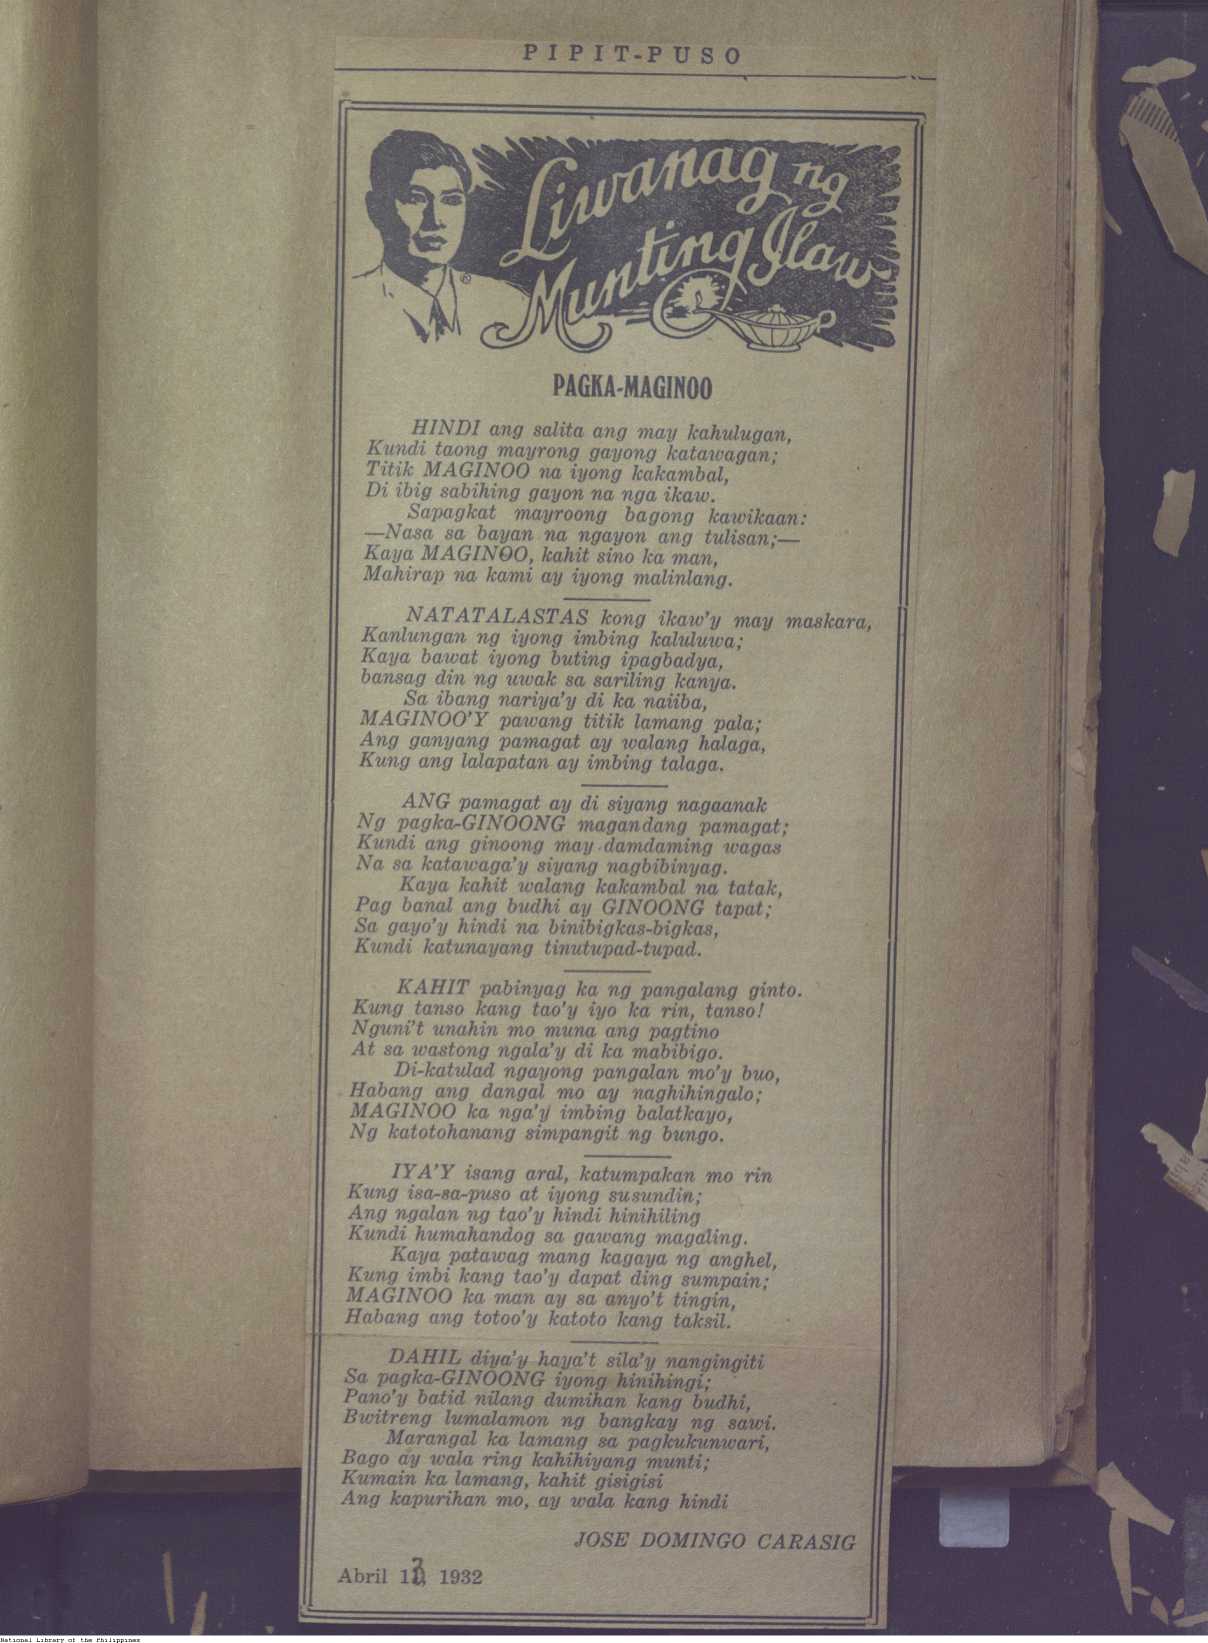 PIPIT-PUSO
Liwanag ng
Munting Ilaw
PAGKA-MAGINOO
HINDI ang salita ang may kahulugan,
Kundi taong mayrong gayong katawagan;
Titik MAGINOO na iyong kakambal,
Di ibig sabihing gayon na nga ikaw.
Sapagkat mayroong bagong kawikaan:
—Nasa sa bayan na ngayon ang tulisan;—
Kaya MAGINOO, kahit sino ka man,
Mahirap na kami ay iyong malinlang.
NATATALASTAS kong ikaw'y may maskara,
Kanlungan ng iyong imbing kaluluwa;
Kaya bawat iyong buting ipagbadya,
bansag din ng uwak sa sariling kanya.
Sa ibang nariya'y di ka naiiba,
MAGINOO'Y pawang titik lamang pala;
Ang ganyang pamagat ay walang halaga,
Kung ang lalapatan ay imbing talaga.
ANG pamagat ay di siyang nagaanak
Ng pagka-GINOONG magandang pamagat;
Kundi ang ginoong may damdaming wagas
Na sa katawaga'y siyang nagbibinyag.
Kaya kahit walang kakambal na tatak,
Pag banal ang budhi ay GINOONG tapat;
Sa gayo'y hindi na binibigkas-bigkas,
Kundi katunayang tinutupad-tupad.
KAHIT pabinyag ka ng pangalang ginto.
Kung tanso kang tao'y iyo ka rin, tanso!
Nguni't unahin mo muna ang pagtino
At sa wastong ngala'y di ka mabibigo.
Di-katulad ngayong pangalan mo'y buo,
Habang ang dangal mo ay naghihingalo;
MAGINOO ka nga'y imbing balatkayo,
Ng katotohanang simpangit ng bungo.
IYA'Y isang aral, katumpakan mo rin
Kung isa-sa-puso at iyong susundin;
Ang ngalan ng tao'y hindi hinihiling
Kundi humahandog sa gawang magaling.
Kaya patawag mang kagaya ng anghel,
Kung imbi kang tao'y dapat ding sumpain;
MAGINOO ka man ay sa anyo't tingin,
Habang ang totoo'y katoto kang taksil.
DAHIL diya'y haya't sila'y nangingiti
Sa pagka-GINOONG iyong hinihingi;
Pano'y batid nilang dumihan kang budhi,
Bwitreng lumalamon ng bangkay ng sawi.
Marangal ka lamang sa pagkukunwari,
Bago ay wala ring kahihiyang munti;
Kumain ka lamang, kahit gisigisi
Ang kapurihan mo, ay wala kang hindi
JOSE DOMINGO CARASIG
Abril 1932
National Library of the Philippines